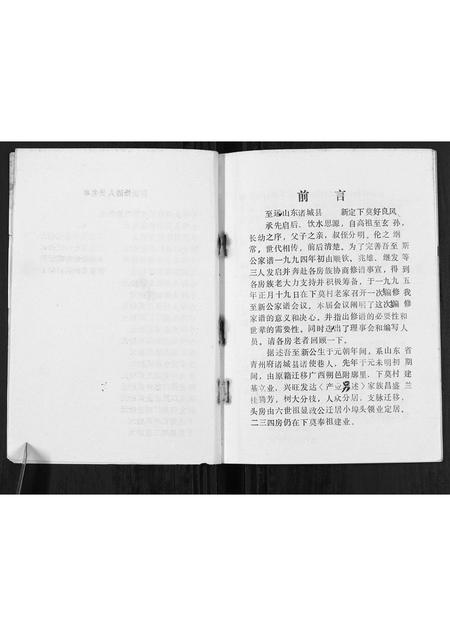 前言
至远山东诸城县 新定下莫好良风
承先启后、饮水思源，自高祖至玄孙，
长幼之序，父子之亲，叔侄分明。伦之纲
常，世代相传，前后清楚。为了完善吾至斯
公家谱一九九四年初由顺钦、兆雄、继发等
三人发启并奔赴各房族协商修谱事宜，得到
各房族老大力支持并积极筹备，于一九九五
年正月十九日在下莫村老家召开一次编修我
至新公家谱会议，本届会议阐明了这次编修
家谱的意义和决心。并指出修谱的必要性和
世辈的需要性。同时选出了理事会和编写人
员。请各房老者回顾一下。
据述吾至新公生于元朝年间，系山东省
青州府诸城县诸使巷人，先年于元末明初期
间，由原籍迁移广西朔邑附廓里，下莫村建
基立业，兴旺发达（产业另述）家族昌盛兰
桂腾芳，树大分枝，人众分居，支脉迁移，
头房由六世祖显政公迁居小埠头领业定居。
二三四房仍在下莫奉祖建业。